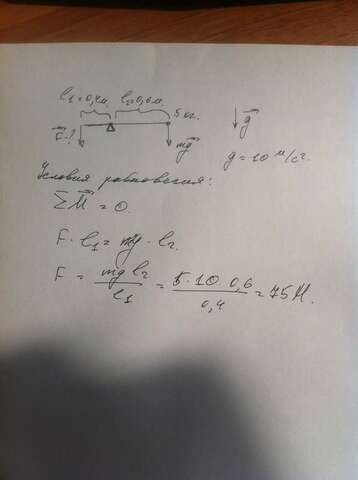 l₁=0,4м. l₂=0,6м.
5 кг.
F⃗-?
mg⃗
g⃗
g=10 м/с².
Условия равновесия:
ΣM⃗ = 0.
F · l₁ = mg · l₂
F = mg l₂ / l₁ = 5·10 0,6 / 0,4 = 75 Н.